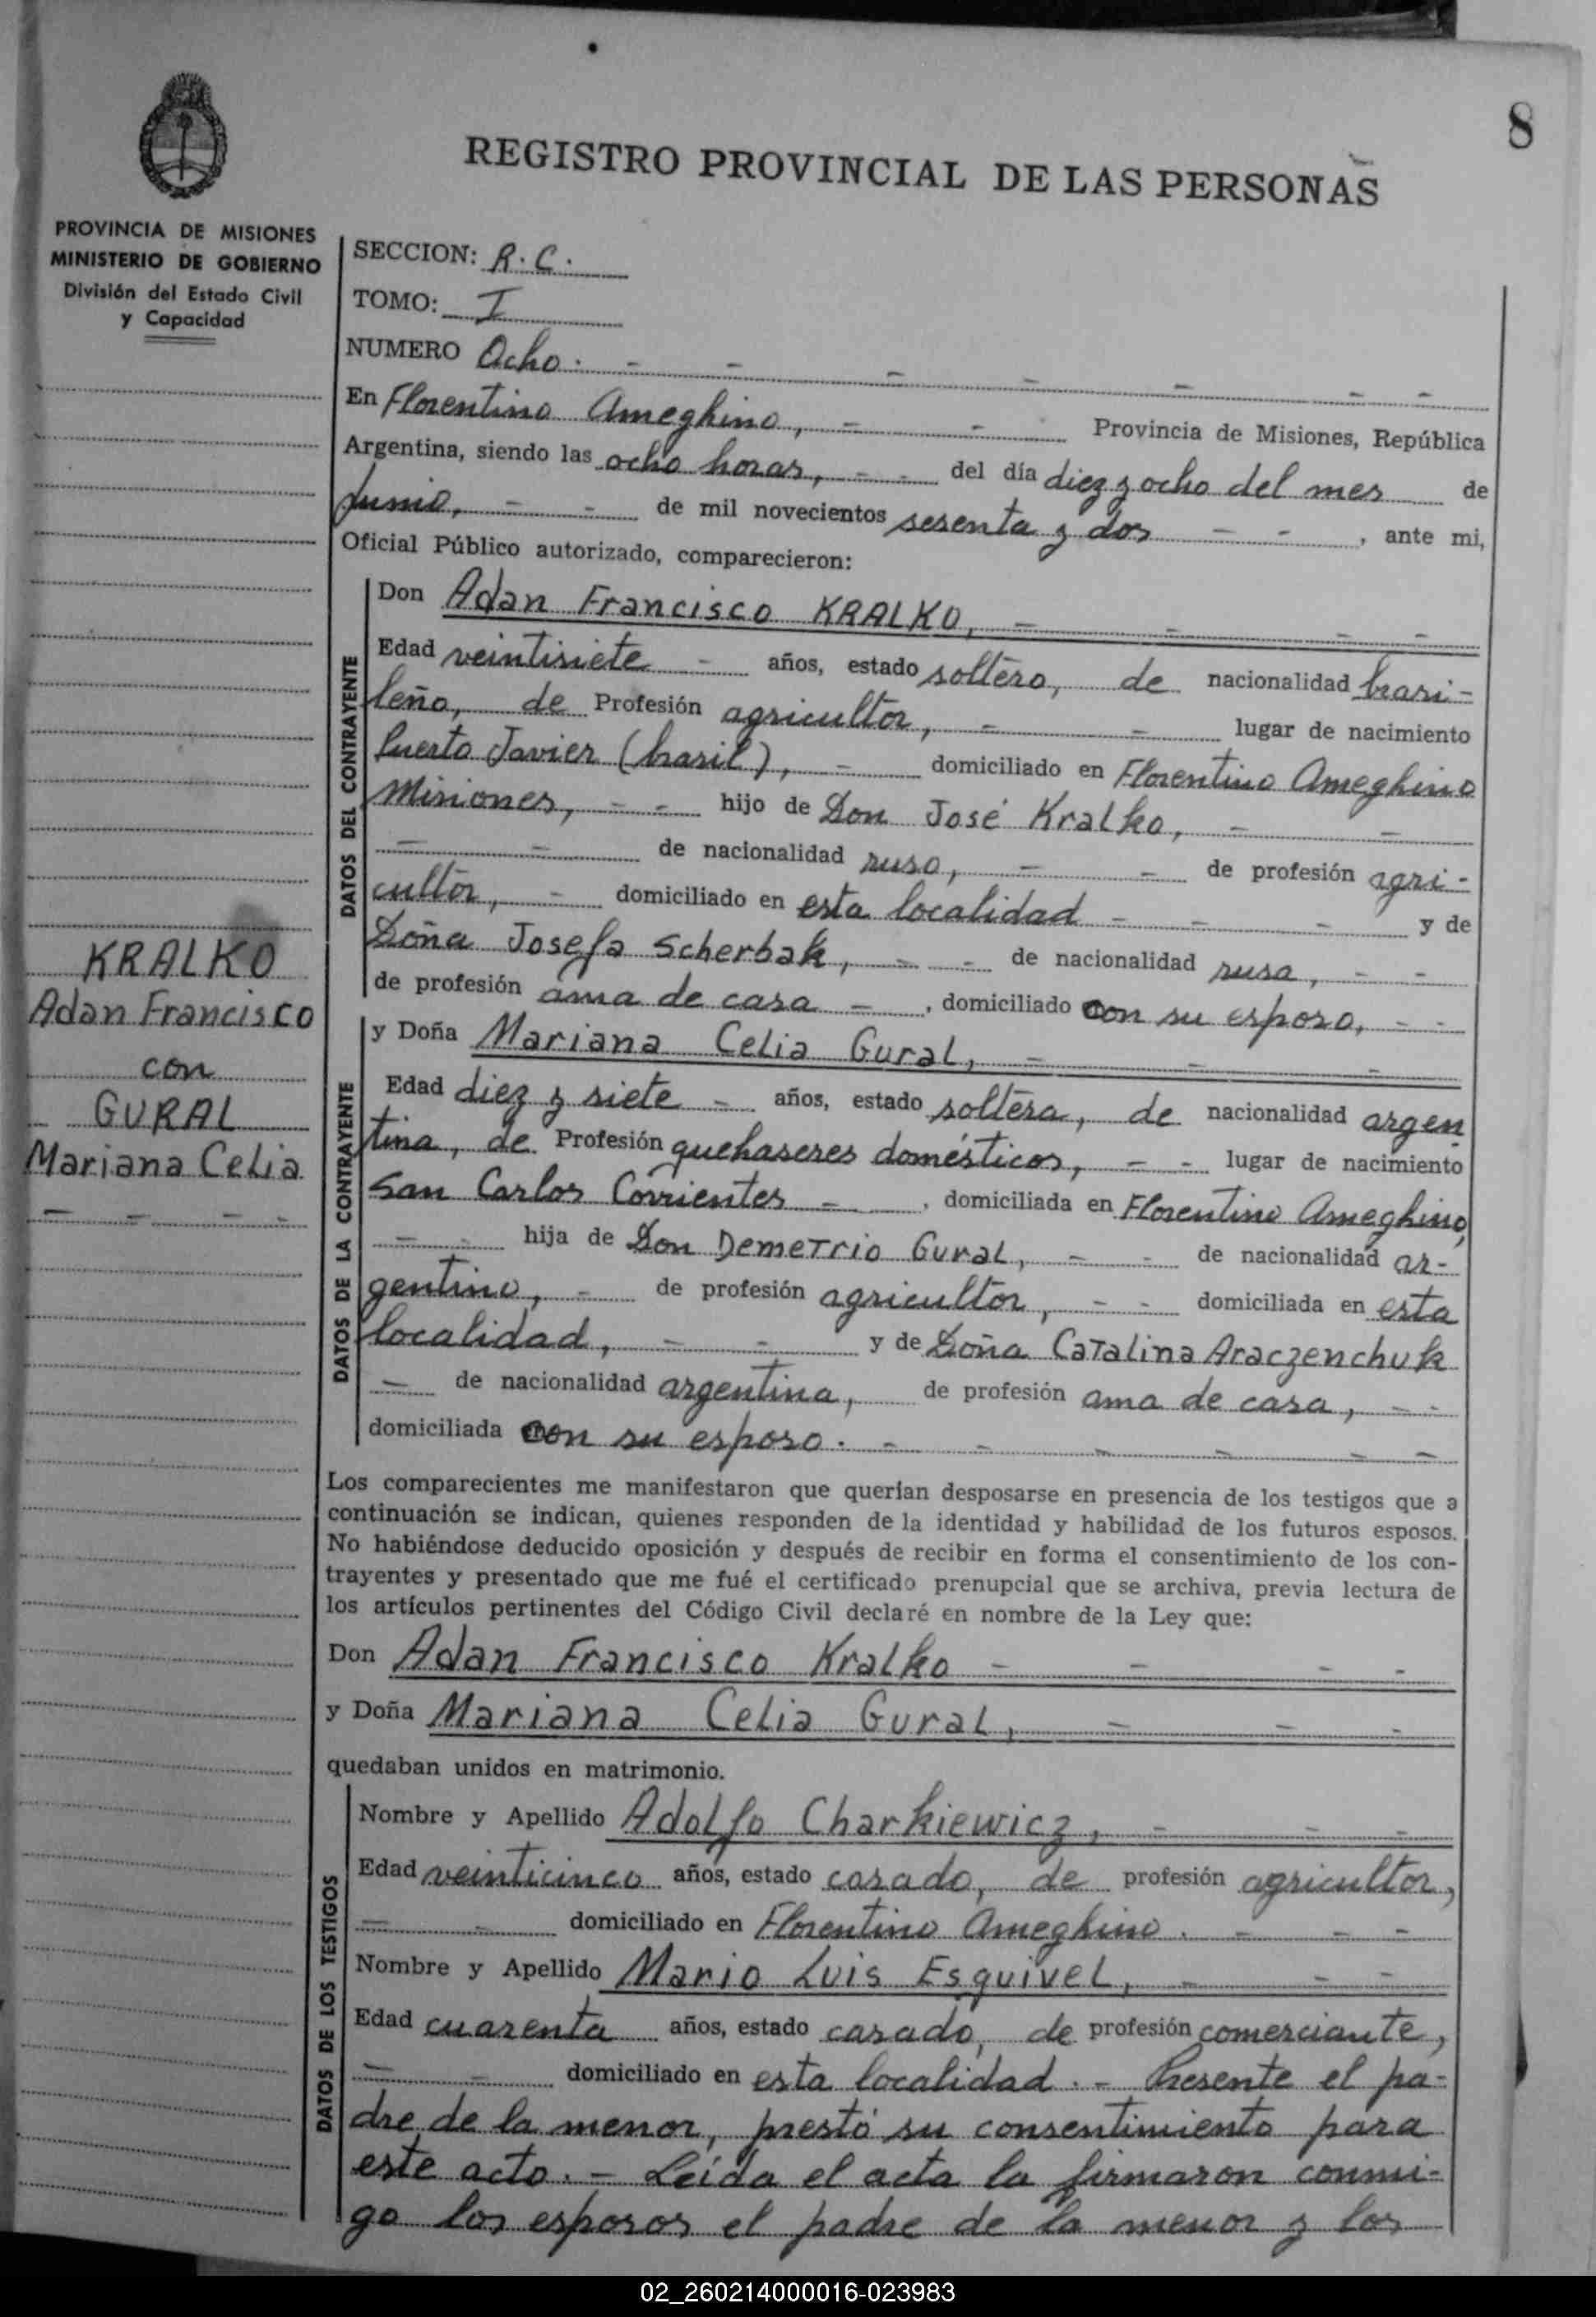 8
REGISTRO PROVINCIAL DE LAS PERSONAS
PROVINCIA DE MISIONES
MINISTERIO DE GOBIERNO
División del Estado Civil
y Capacidad
SECCION: R. C.
TOMO: I
NUMERO Ocho. - - - - - - -
En Florentino Ameghino, - - Provincia de Misiones, República
Argentina, siendo las ocho horas, - - del día diez y ocho del mes de
Junio, - - de mil novecientos sesenta y dos - - , ante mi,
Oficial Público autorizado, comparecieron:
DATOS DEL CONTRAYENTE
Don Adan Francisco KRALKO, - - - -
Edad veintisiete - años, estado soltero, de nacionalidad brasi-
leño, de Profesión agricultor, - - lugar de nacimiento
Puerto Javier (brasil), - domiciliado en Florentino Ameghino
Misiones, - - hijo de Don José Kralko, - -
- - de nacionalidad ruso, - - de profesión agri-
cultor, - domiciliado en esta localidad - - - y de
Doña Josefa Scherbak, - - de nacionalidad rusa, - -
de profesión ama de casa - , domiciliado con su esposo, - -
KRALKO
Adan Francisco
con
GURAL
Mariana Celia
- - - -
DATOS DE LA CONTRAYENTE
y Doña Mariana Celia Gural, - - -
Edad diez y siete - años, estado soltera, de nacionalidad argen
tina, de Profesión quehaseres domésticos, - - lugar de nacimiento
San Carlos Corrientes - , domiciliada en Florentino Ameghino,
- - hija de Don Demetrio Gural, - - de nacionalidad ar-
gentino, - de profesión agricultor, - - domiciliada en esta
localidad, - - y de Doña Catalina Araczenchuk
- de nacionalidad argentina, de profesión ama de casa, - -
domiciliada con su esposo. - - - - - -
Los comparecientes me manifestaron que querían desposarse en presencia de los testigos que a
continuación se indican, quienes responden de la identidad y habilidad de los futuros esposos.
No habiéndose deducido oposición y después de recibir en forma el consentimiento de los con-
trayentes y presentado que me fué el certificado prenupcial que se archiva, previa lectura de
los artículos pertinentes del Código Civil declaré en nombre de la Ley que:
Don Adan Francisco Kralko - - - -
y Doña Mariana Celia Gural, - - -
quedaban unidos en matrimonio.
DATOS DE LOS TESTIGOS
Nombre y Apellido Adolfo Charkiewicz, - - -
Edad veinticinco años, estado casado, de profesión agricultor,
- - domiciliado en Florentino Ameghino. - - -
Nombre y Apellido Mario Luis Esquivel, - - -
Edad cuarenta años, estado casado, de profesión comerciante,
- - domiciliado en esta localidad. - Presente el pa-
dre de la menor, prestó su consentimiento para
este acto. - Leída el acta la firmaron conmi-
go los esposos el padre de la menor y los
02_260214000016-023983